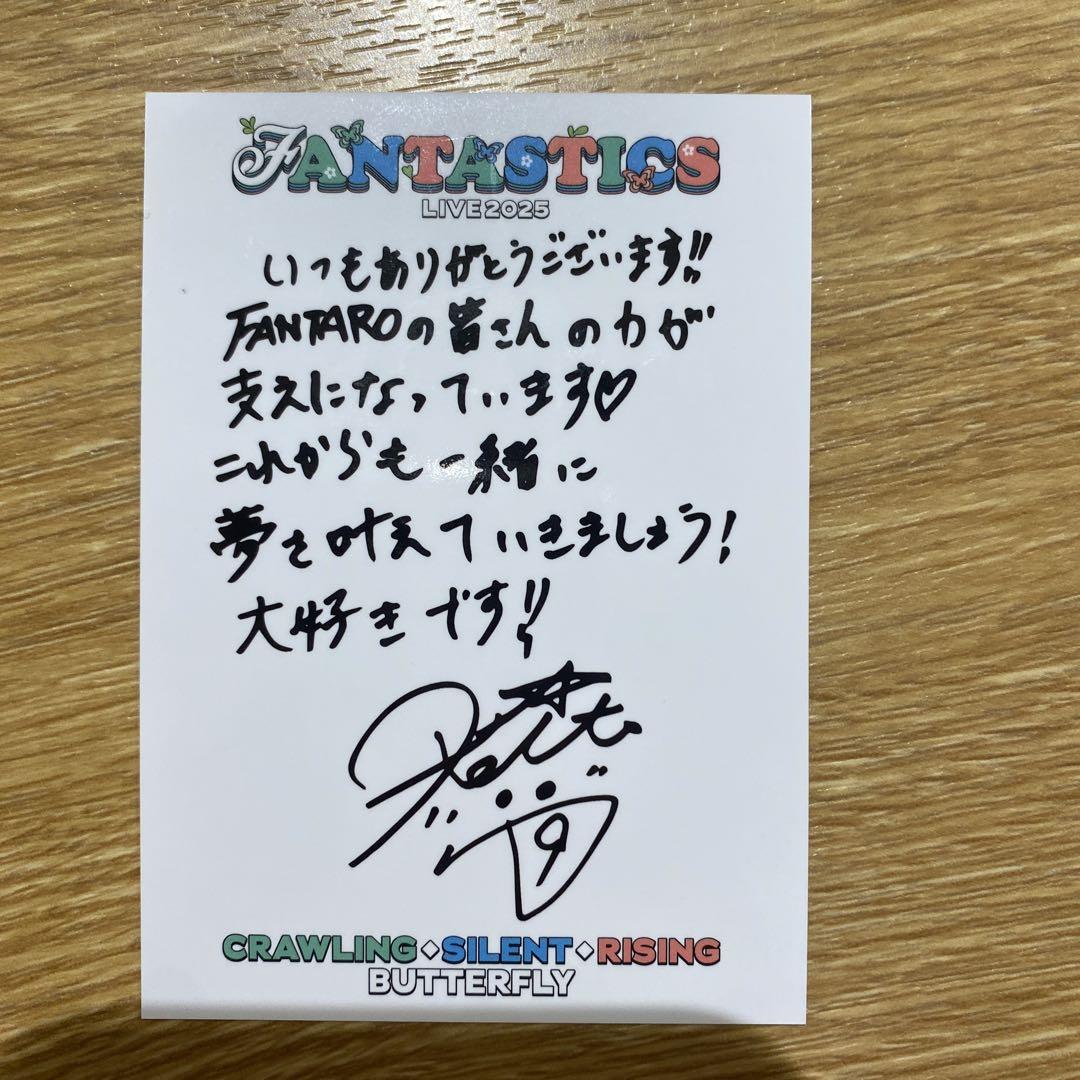 FANTASTICS
LIVE 2025
いつもありがとうございます!!
FANTAROの皆さんの力が
支えになっています♡
これからも一緒に
夢を叶えていきましょう!
大好きです!!
9
CRAWLING◇SILENT◇RISING
BUTTERFLY